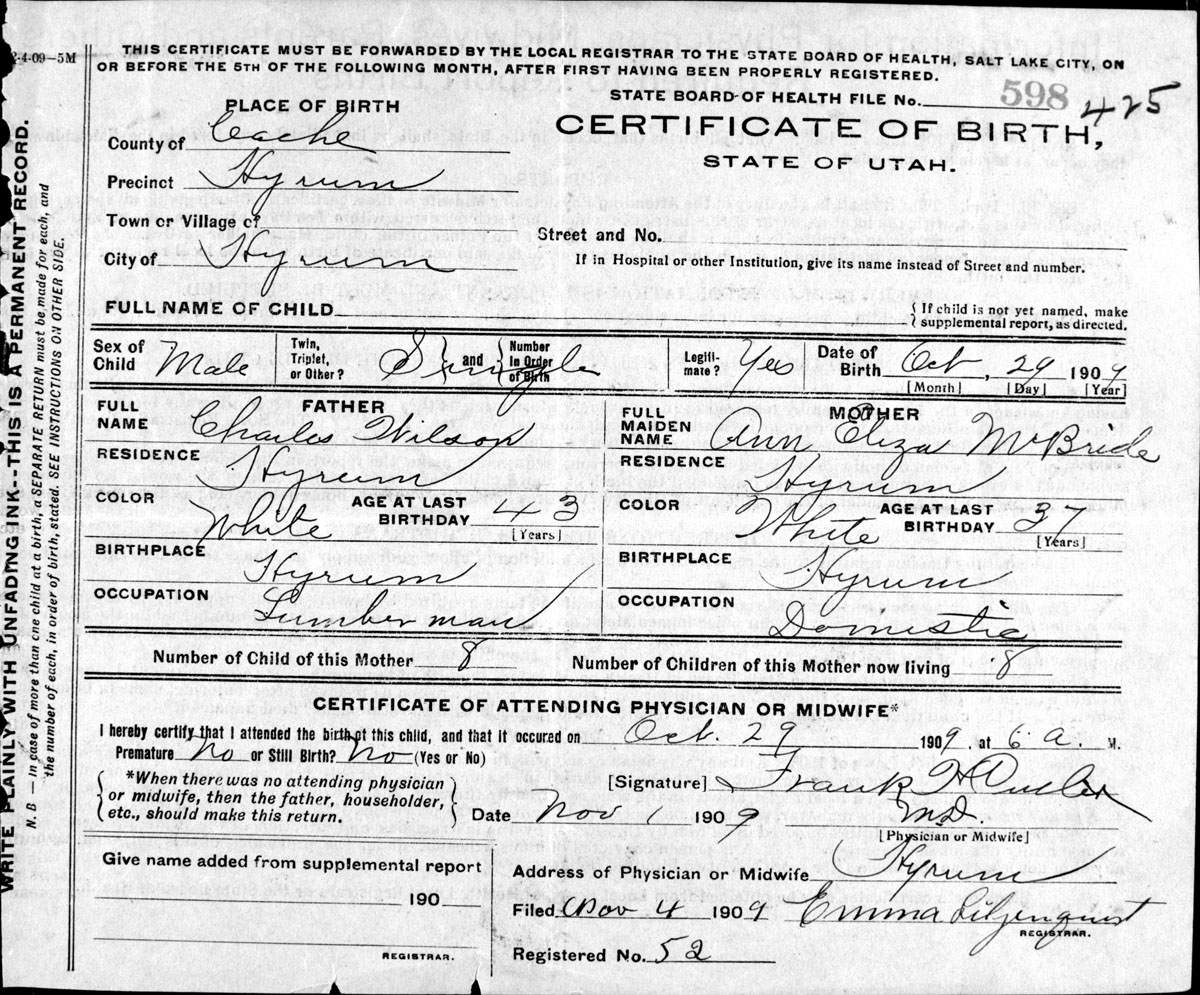 2-4-09—5M
THIS CERTIFICATE MUST BE FORWARDED BY THE LOCAL REGISTRAR TO THE STATE BOARD OF HEALTH, SALT LAKE CITY, ON
OR BEFORE THE 5TH OF THE FOLLOWING MONTH, AFTER FIRST HAVING BEEN PROPERLY REGISTERED.
STATE BOARD OF HEALTH FILE No. 598 425
PLACE OF BIRTH
CERTIFICATE OF BIRTH,
STATE OF UTAH.
County of Cache
Precinct Hyrum
Town or Village of
City of Hyrum
Street and No.
If in Hospital or other Institution, give its name instead of Street and number.
FULL NAME OF CHILD
{ If child is not yet named, make
{ supplemental report, as directed.
Sex of Child Male
Twin, Triplet, or Other? Single { and { Number in Order of Birth
Legiti- mate? Yes
Date of Birth Oct, 29 1909
[Month] [Day] [Year]
FATHER
FULL NAME Charles Wilson
RESIDENCE Hyrum
COLOR White
AGE AT LAST BIRTHDAY 43
[Years]
BIRTHPLACE Hyrum
OCCUPATION Lumberman
MOTHER
FULL MAIDEN NAME Ann Eliza McBride
RESIDENCE Hyrum
COLOR White
AGE AT LAST BIRTHDAY 37
[Years]
BIRTHPLACE Hyrum
OCCUPATION Domistic
Number of Child of this Mother 8
Number of Children of this Mother now living 8
CERTIFICATE OF ATTENDING PHYSICIAN OR MIDWIFE*
I hereby certify that I attended the birth of this child, and that it occured on Oct. 29 1909, at 6 a. M.
Premature No or Still Birth? No (Yes or No)
{ *When there was no attending physician
or midwife, then the father, householder,
etc., should make this return. }
[Signature] Frank H
M.D.
Date Nov 1 1909
[Physician or Midwife]
Give name added from supplemental report
190
REGISTRAR.
Address of Physician or Midwife Hyrum
Filed Nov 4 1909 Emma Liljenquist
REGISTRAR.
Registered No. 52
WRITE PLAINLY WITH UNFADING INK--THIS IS A PERMANENT RECORD.
N. B.—In case of more than one child at a birth, a SEPARATE RETURN must be made for each, and
the number of each, in order of birth, stated. SEE INSTRUCTIONS ON OTHER SIDE.